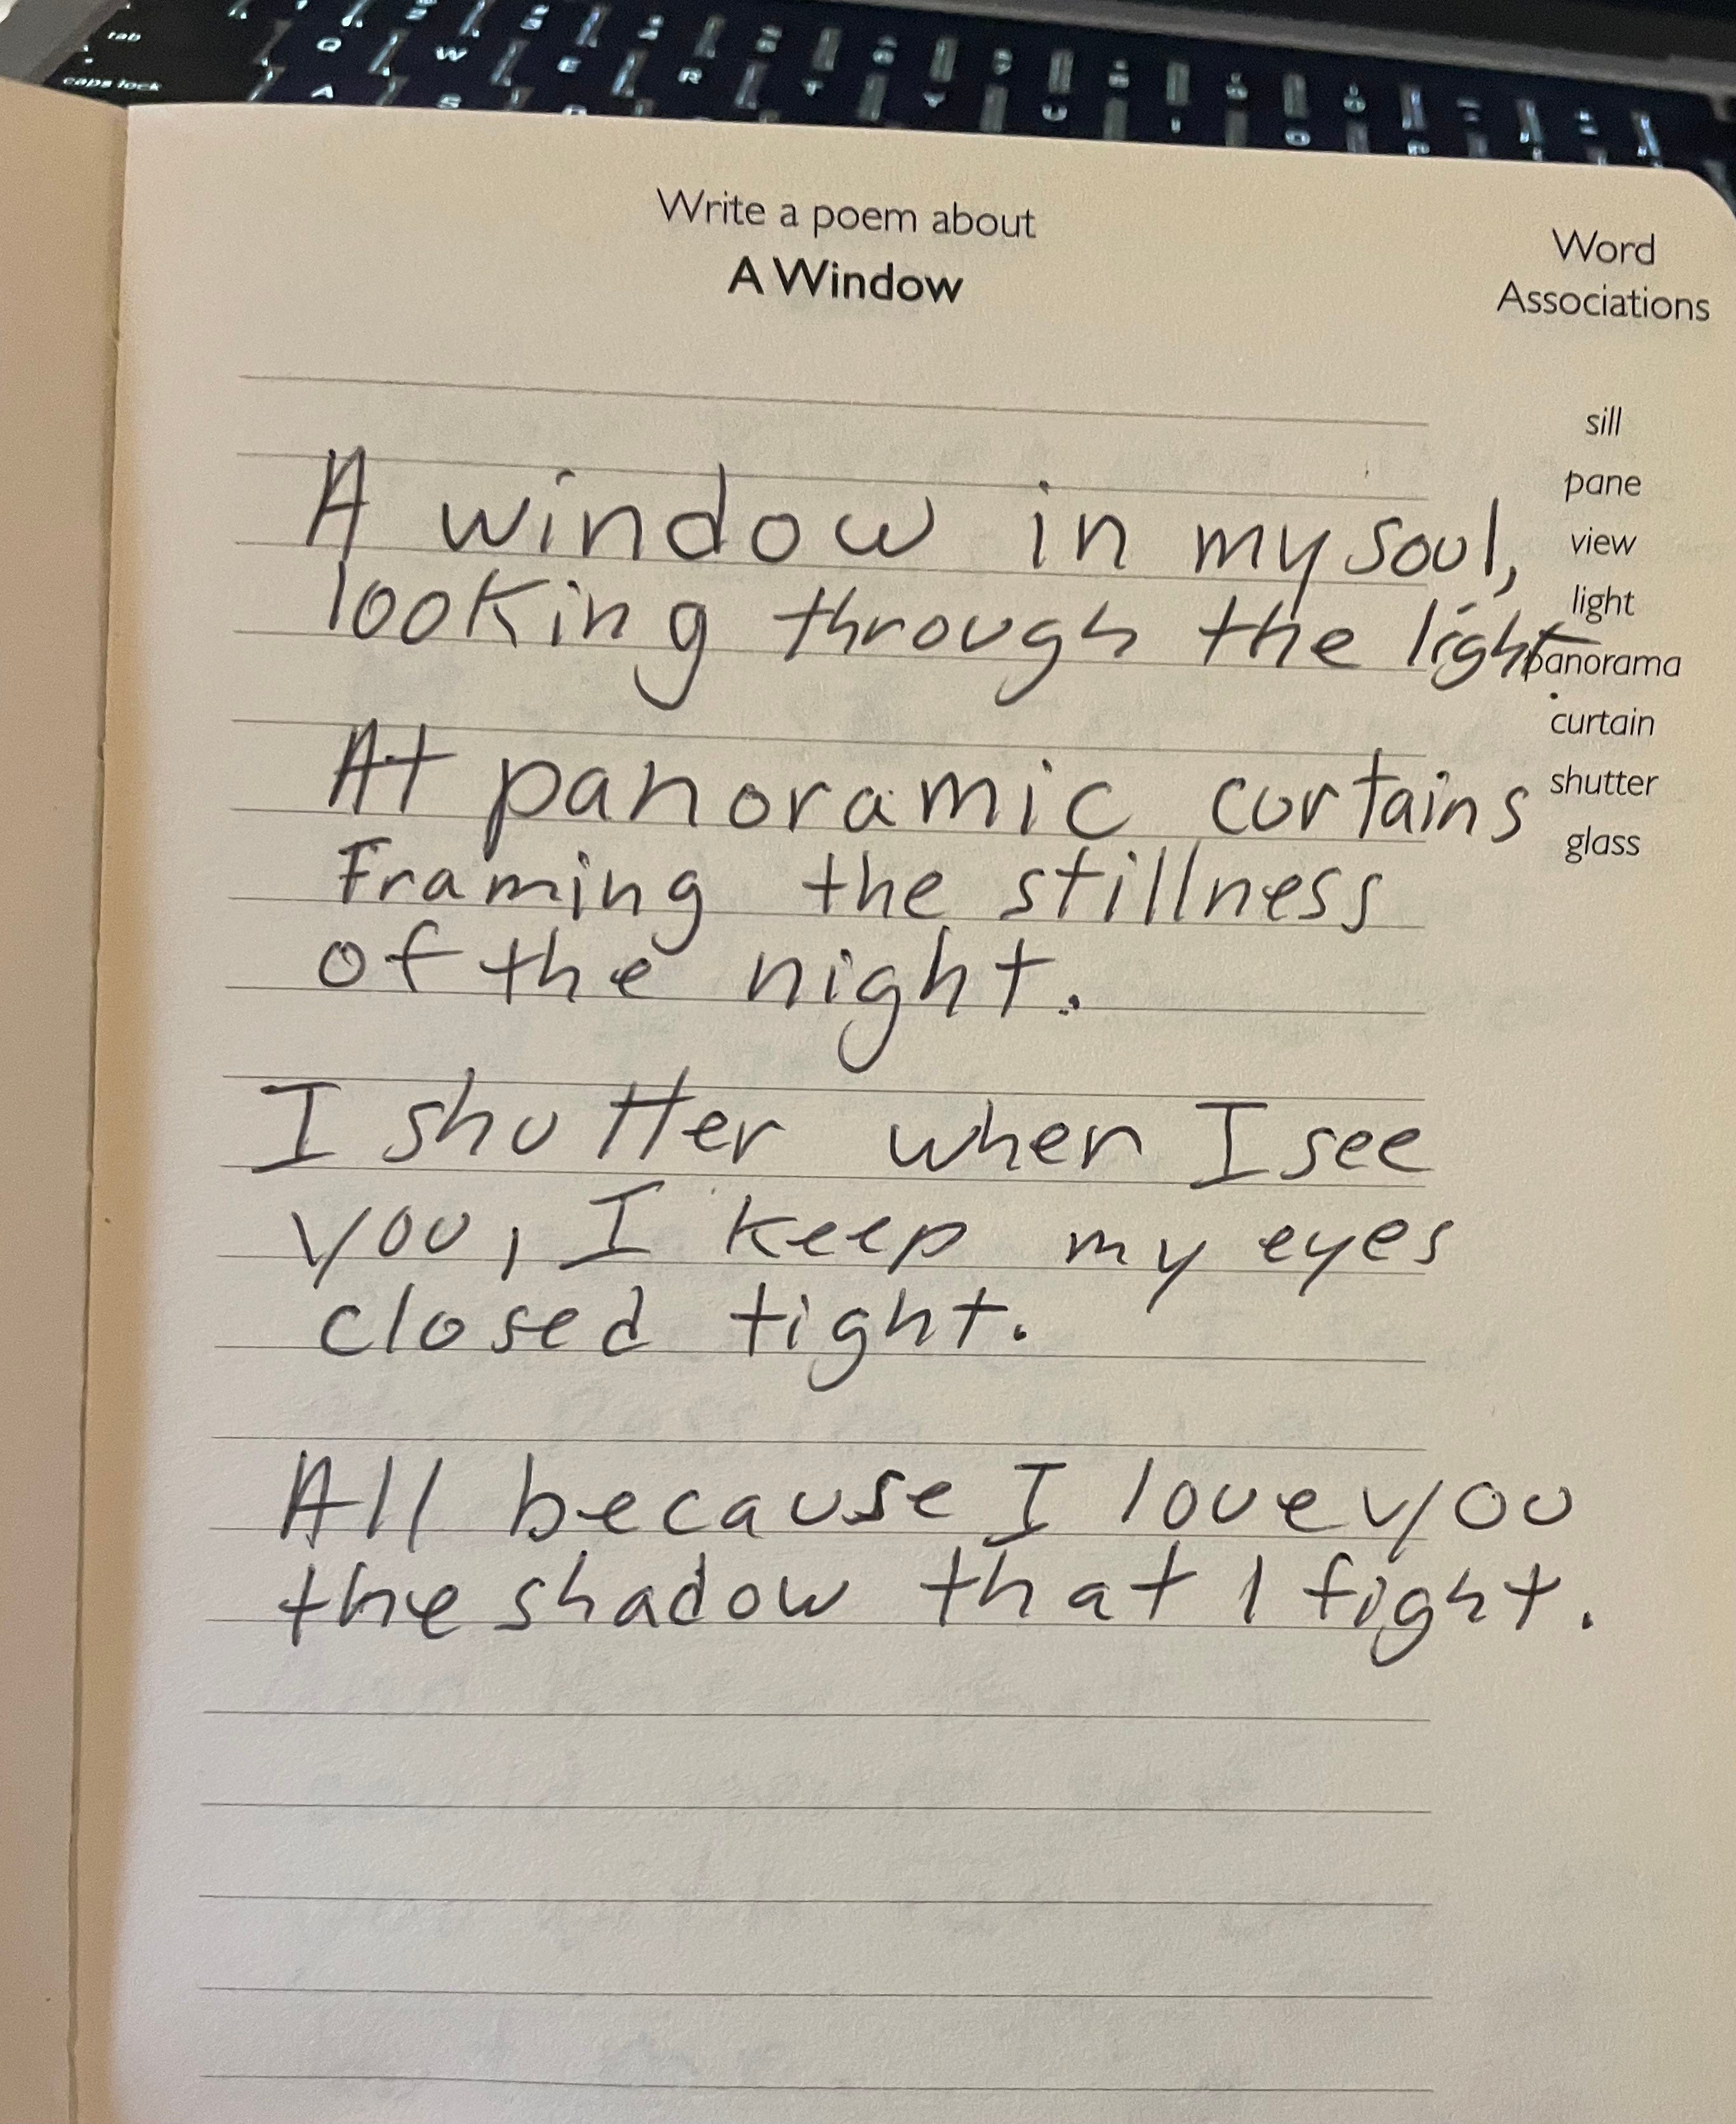 tab
caps lock
Q W E R T Y U I O P
A S
Write a poem about
A Window
Word
Associations
sill
pane
view
light
panorama
curtain
shutter
glass
A window in my soul,
looking through the light.
At panoramic curtains
Framing the stillness
of the night.
I shutter when I see
you, I keep my eyes
closed tight.
All because I love you
the shadow that I fight.